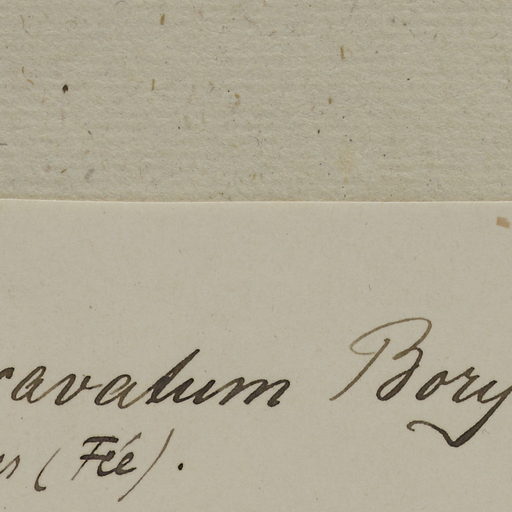 cavatum Bory
us (Fée).